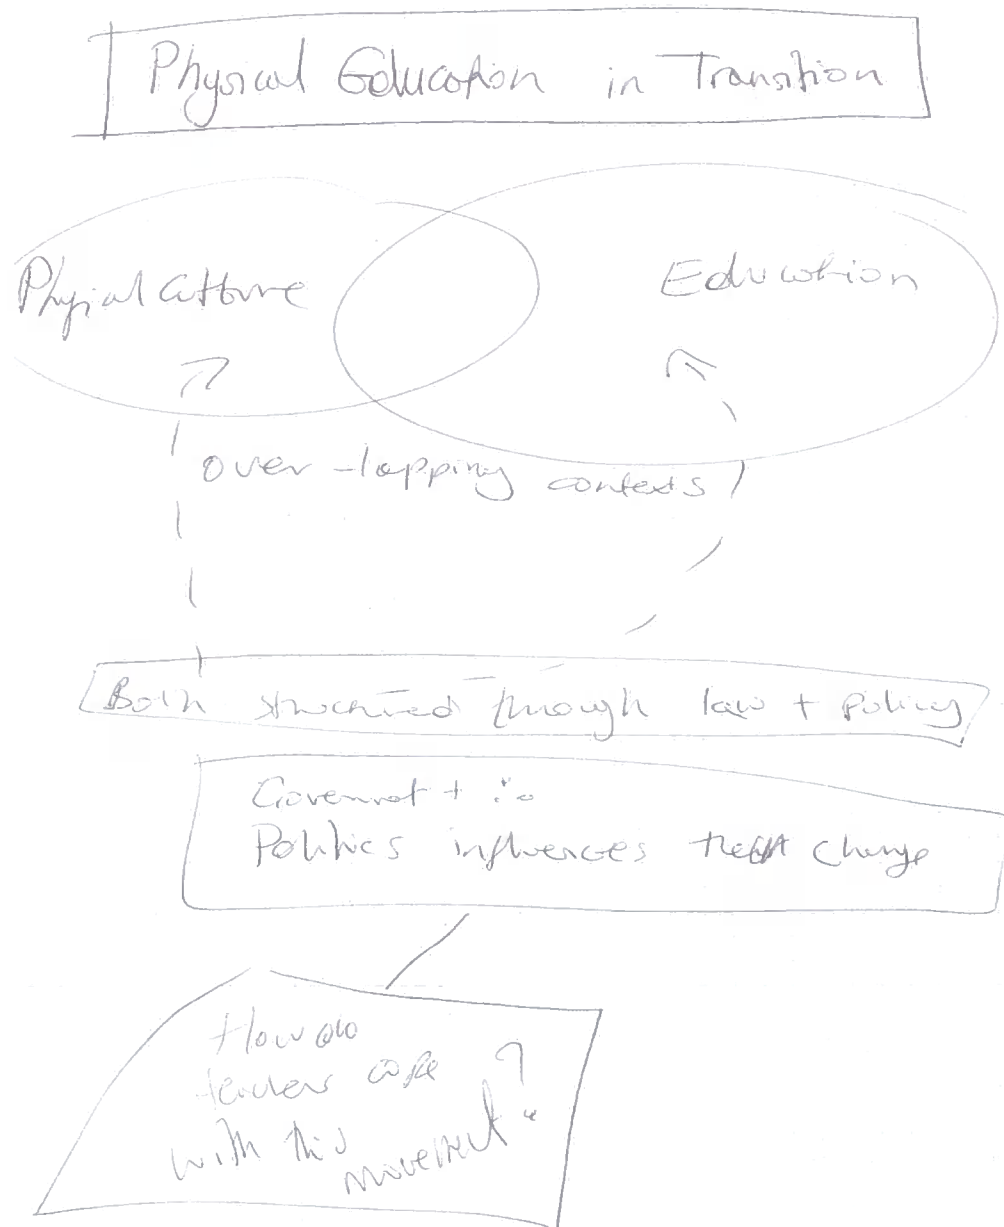 Physical Education in Transition
Physical Culture
Education
over-lapping contexts
Both structured through law + policy
Government +
Politics influences change
How do
teachers cope
with this
movement?